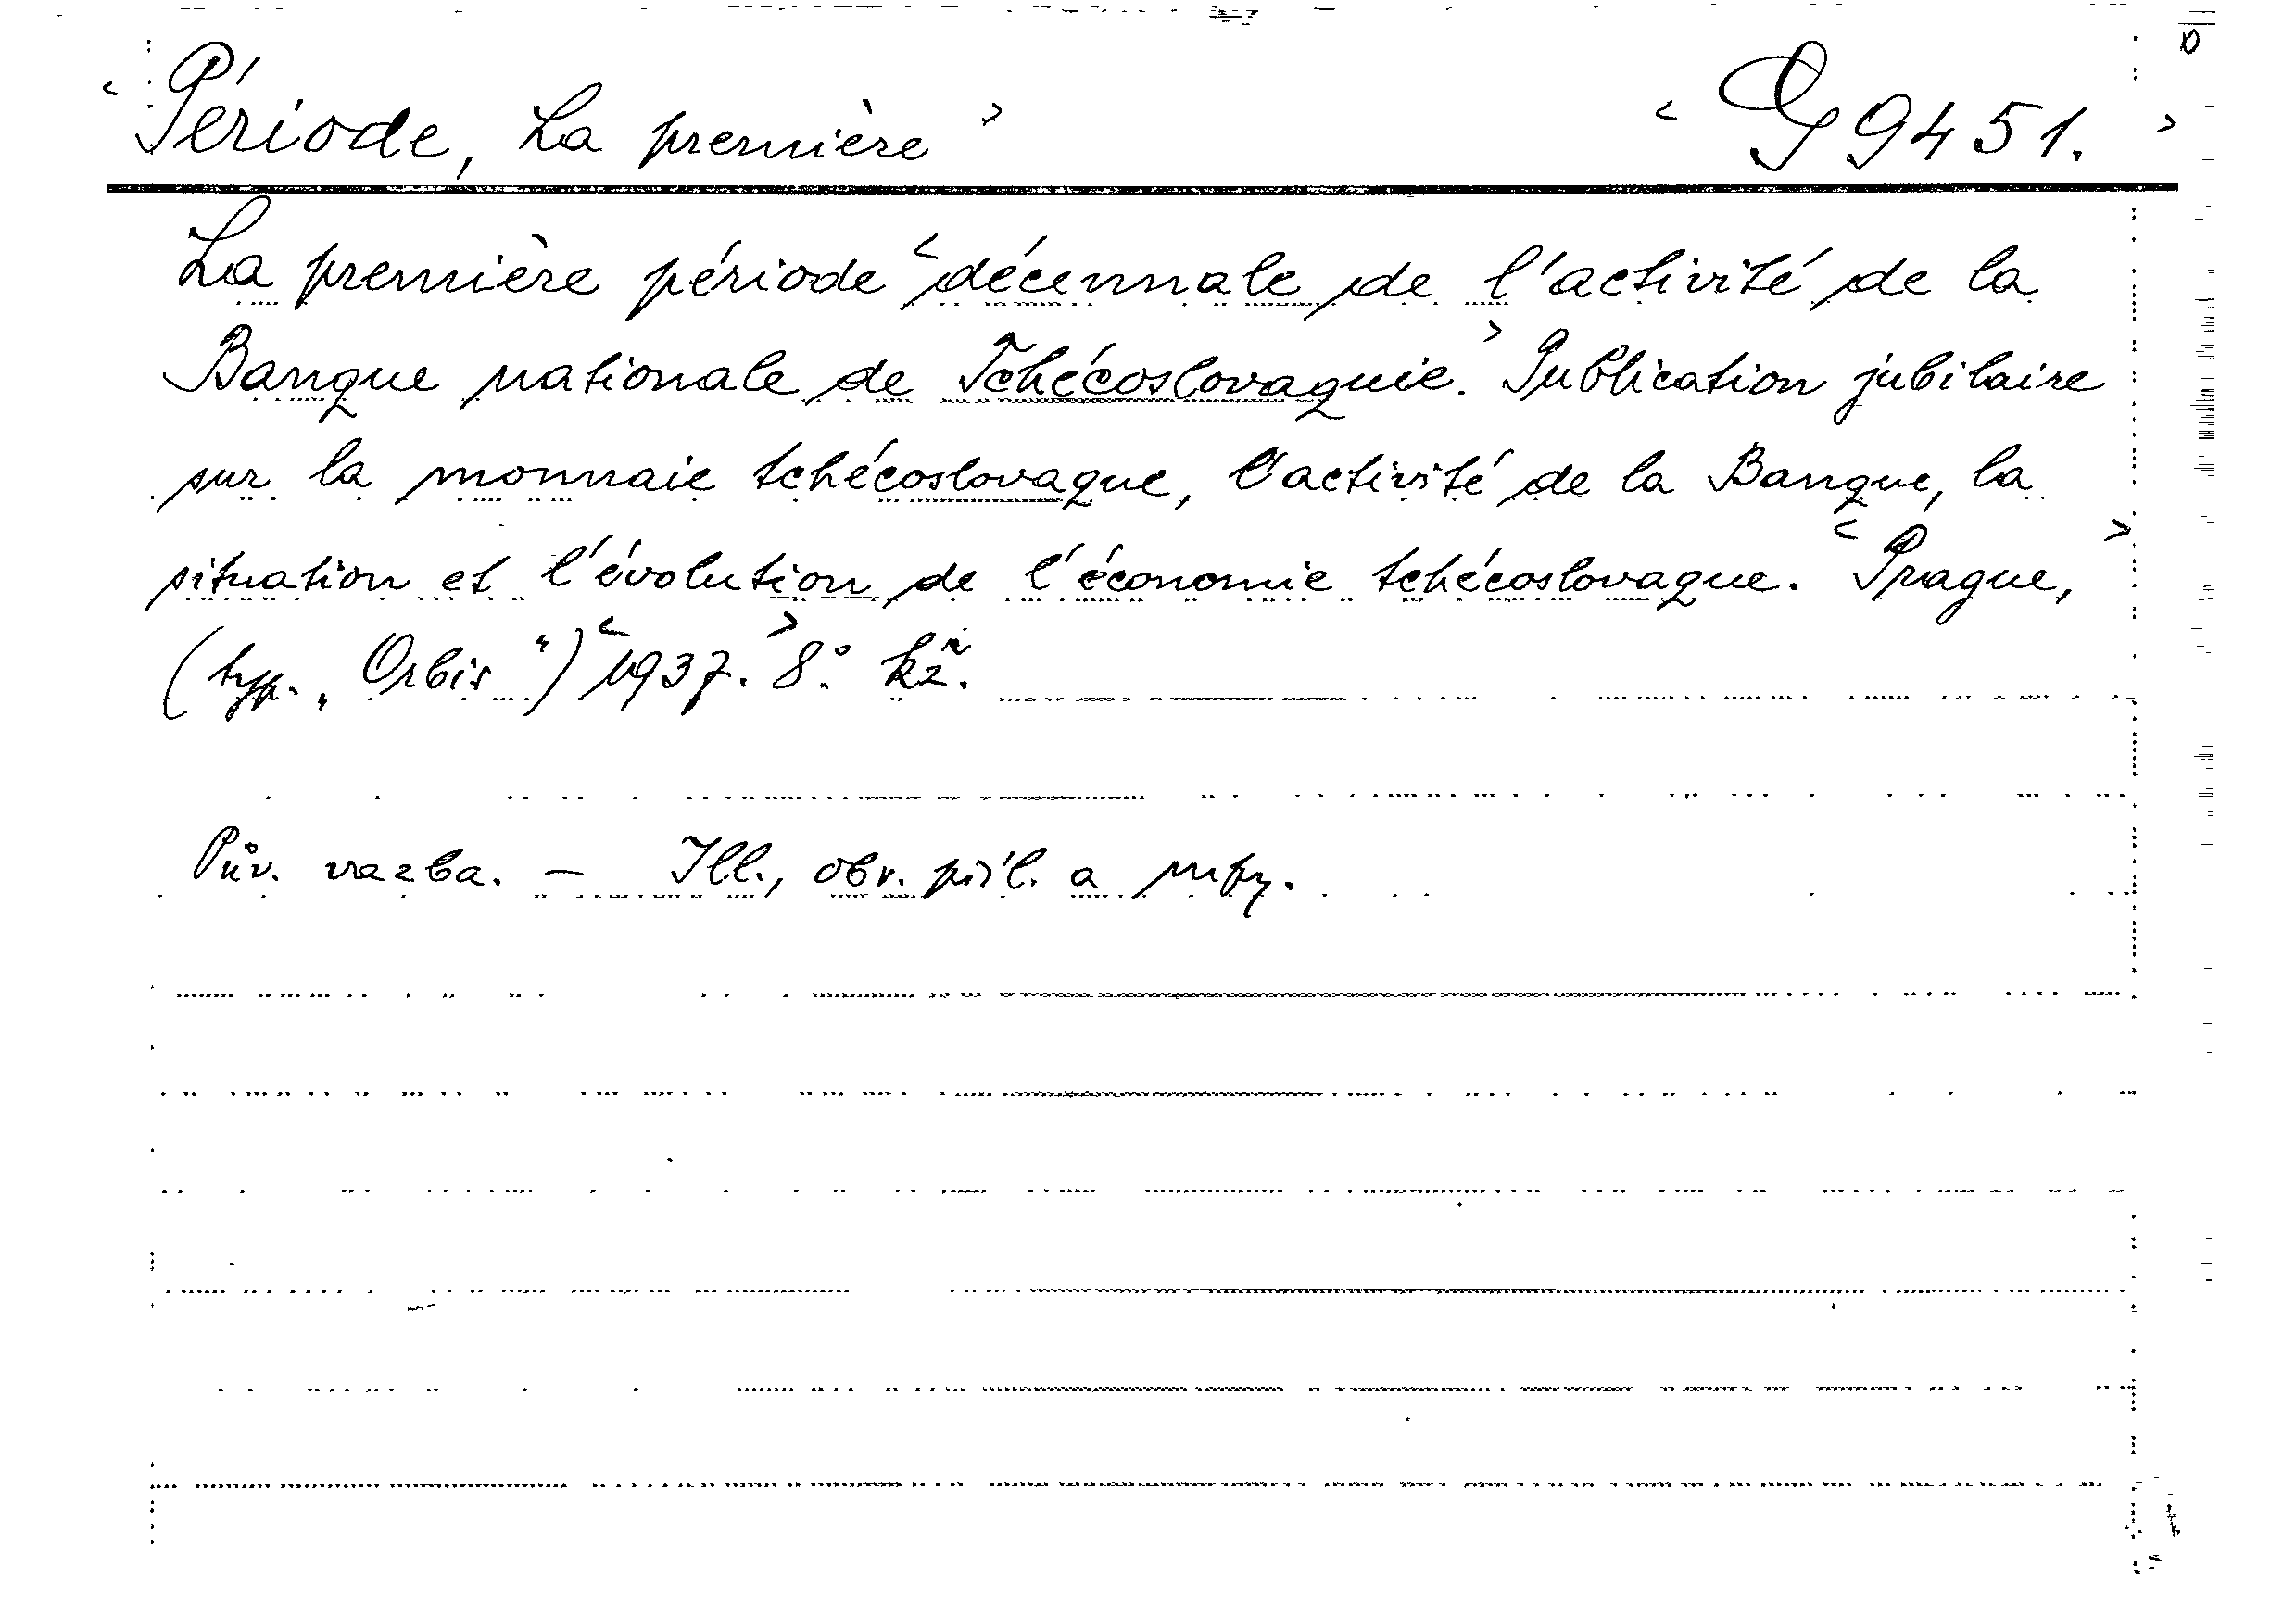 <Période, La première> <G 9451.>
La première période <décennale de l'activité de la
Banque nationale de Tchécoslovaquie.> Publication jubilaire
sur la monnaie tchécoslovaque, l'activité de la Banque, la
situation et l'évolution de l'économie tchécoslovaque. <Prague,>
(typ. „Orbis“) <1937.> 8°.
Pův. vazba. — Ill., obr. příl. a mpy.